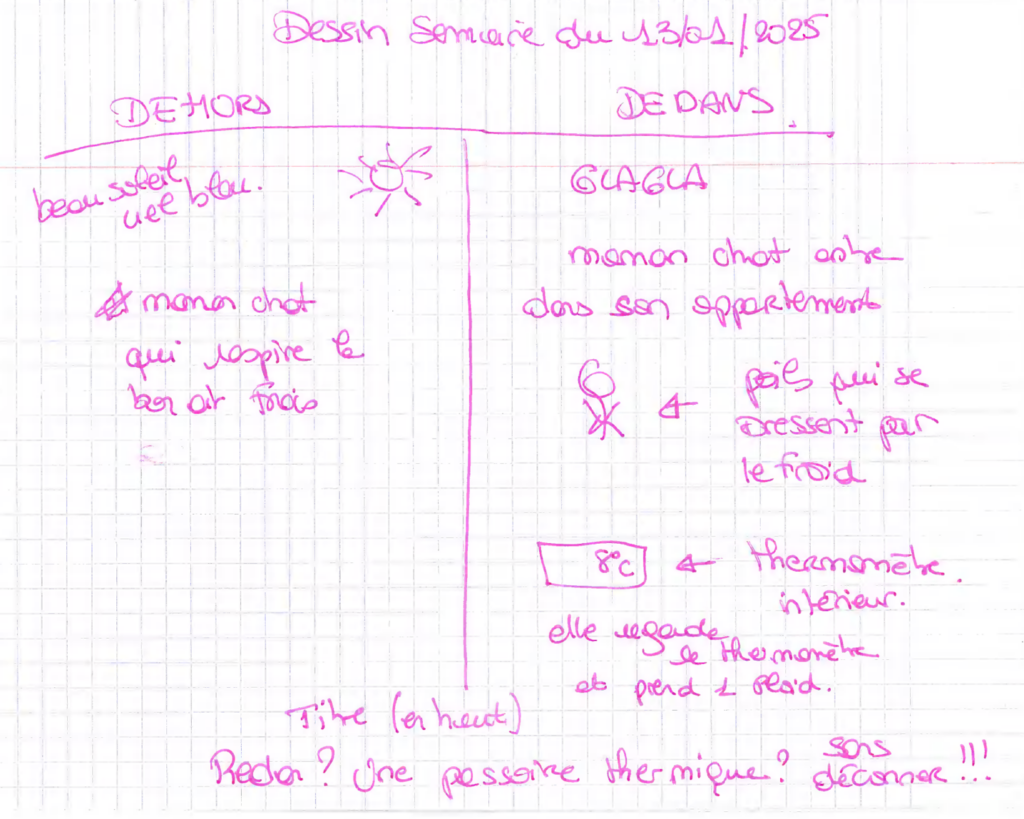 Dessin Semaine du 13/01/2025
DEHORS
beau soleil
ciel bleu.
maman chat
qui respire le
bon air frais
DEDANS.
GLAGLA
maman chat entre
dans son appartement
poils qui se
dressent par
le froid
8°C
thermomètre.
intérieur.
elle regarde
le thermomètre
et prend 1 plaid.
Titre (en haut)
? Une passoire thermique? sans déconner!!!